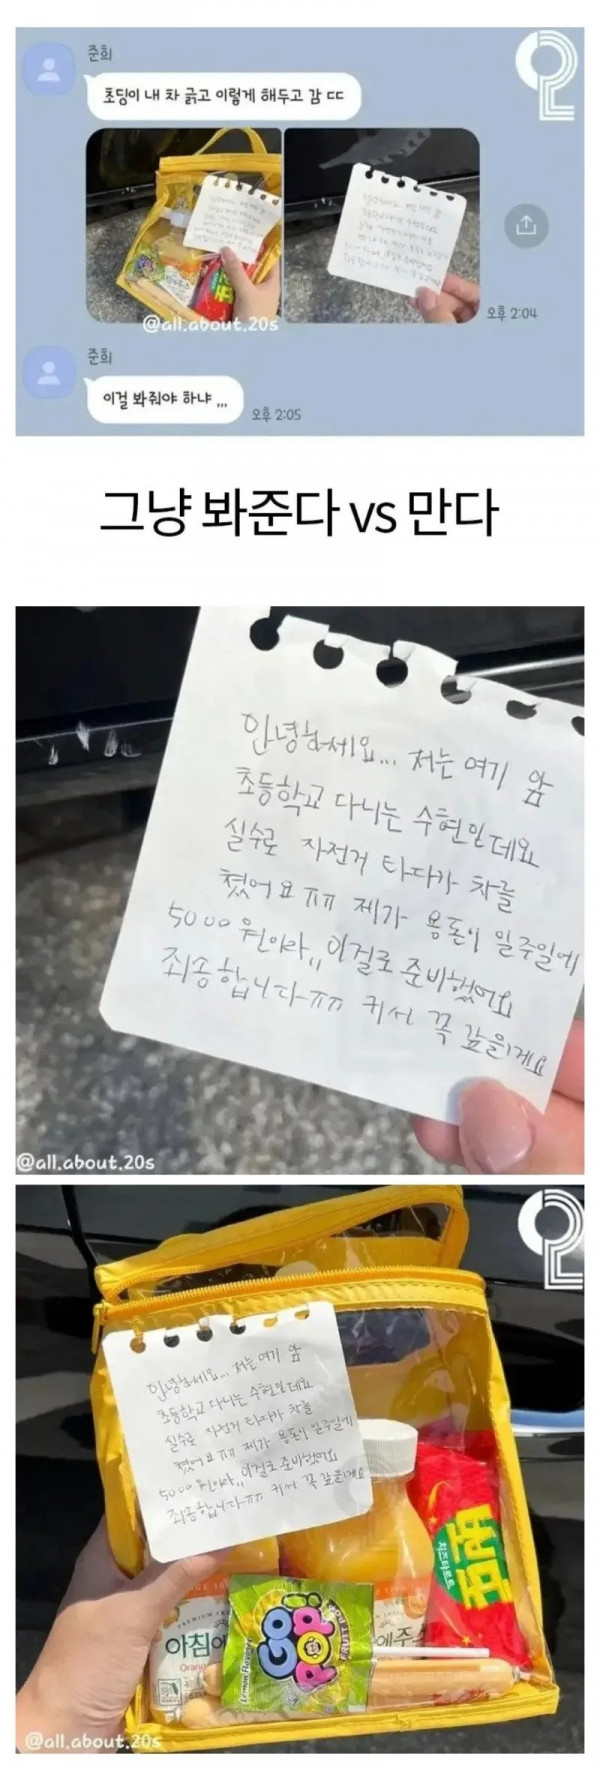 준희
초딩이 내 차 긁고 이렇게 해두고 감 ㄷㄷ
@all.about.20s
오후 2:04
준희
이걸 봐줘야 하냐 ,,,
오후 2:05
그냥 봐준다 vs 만다
안녕하세요... 저는 여기 앞
초등학교 다니는 수현인데요
실수로 자전거 타다가 차를
쳤어요ㅠㅠ 제가 용돈이 일주일에
5000원이라,, 이걸로 준비했어요
죄송합니다ㅠㅠ 커서 꼭 갚을게요
@all.about.20s
안녕하세요... 저는 여기 앞
초등학교 다니는 수현인데요
실수로 자전거 타다가 차를
쳤어요ㅠㅠ 제가 용돈이 일주일에
5000원이라,, 이걸로 준비했어요
죄송합니다ㅠㅠ 커서 꼭 갚을게요
치즈타르트
GO
POP!
FRUIT POP
Lemon Flavor
아침에
Orange
에주스
@all.about.20s